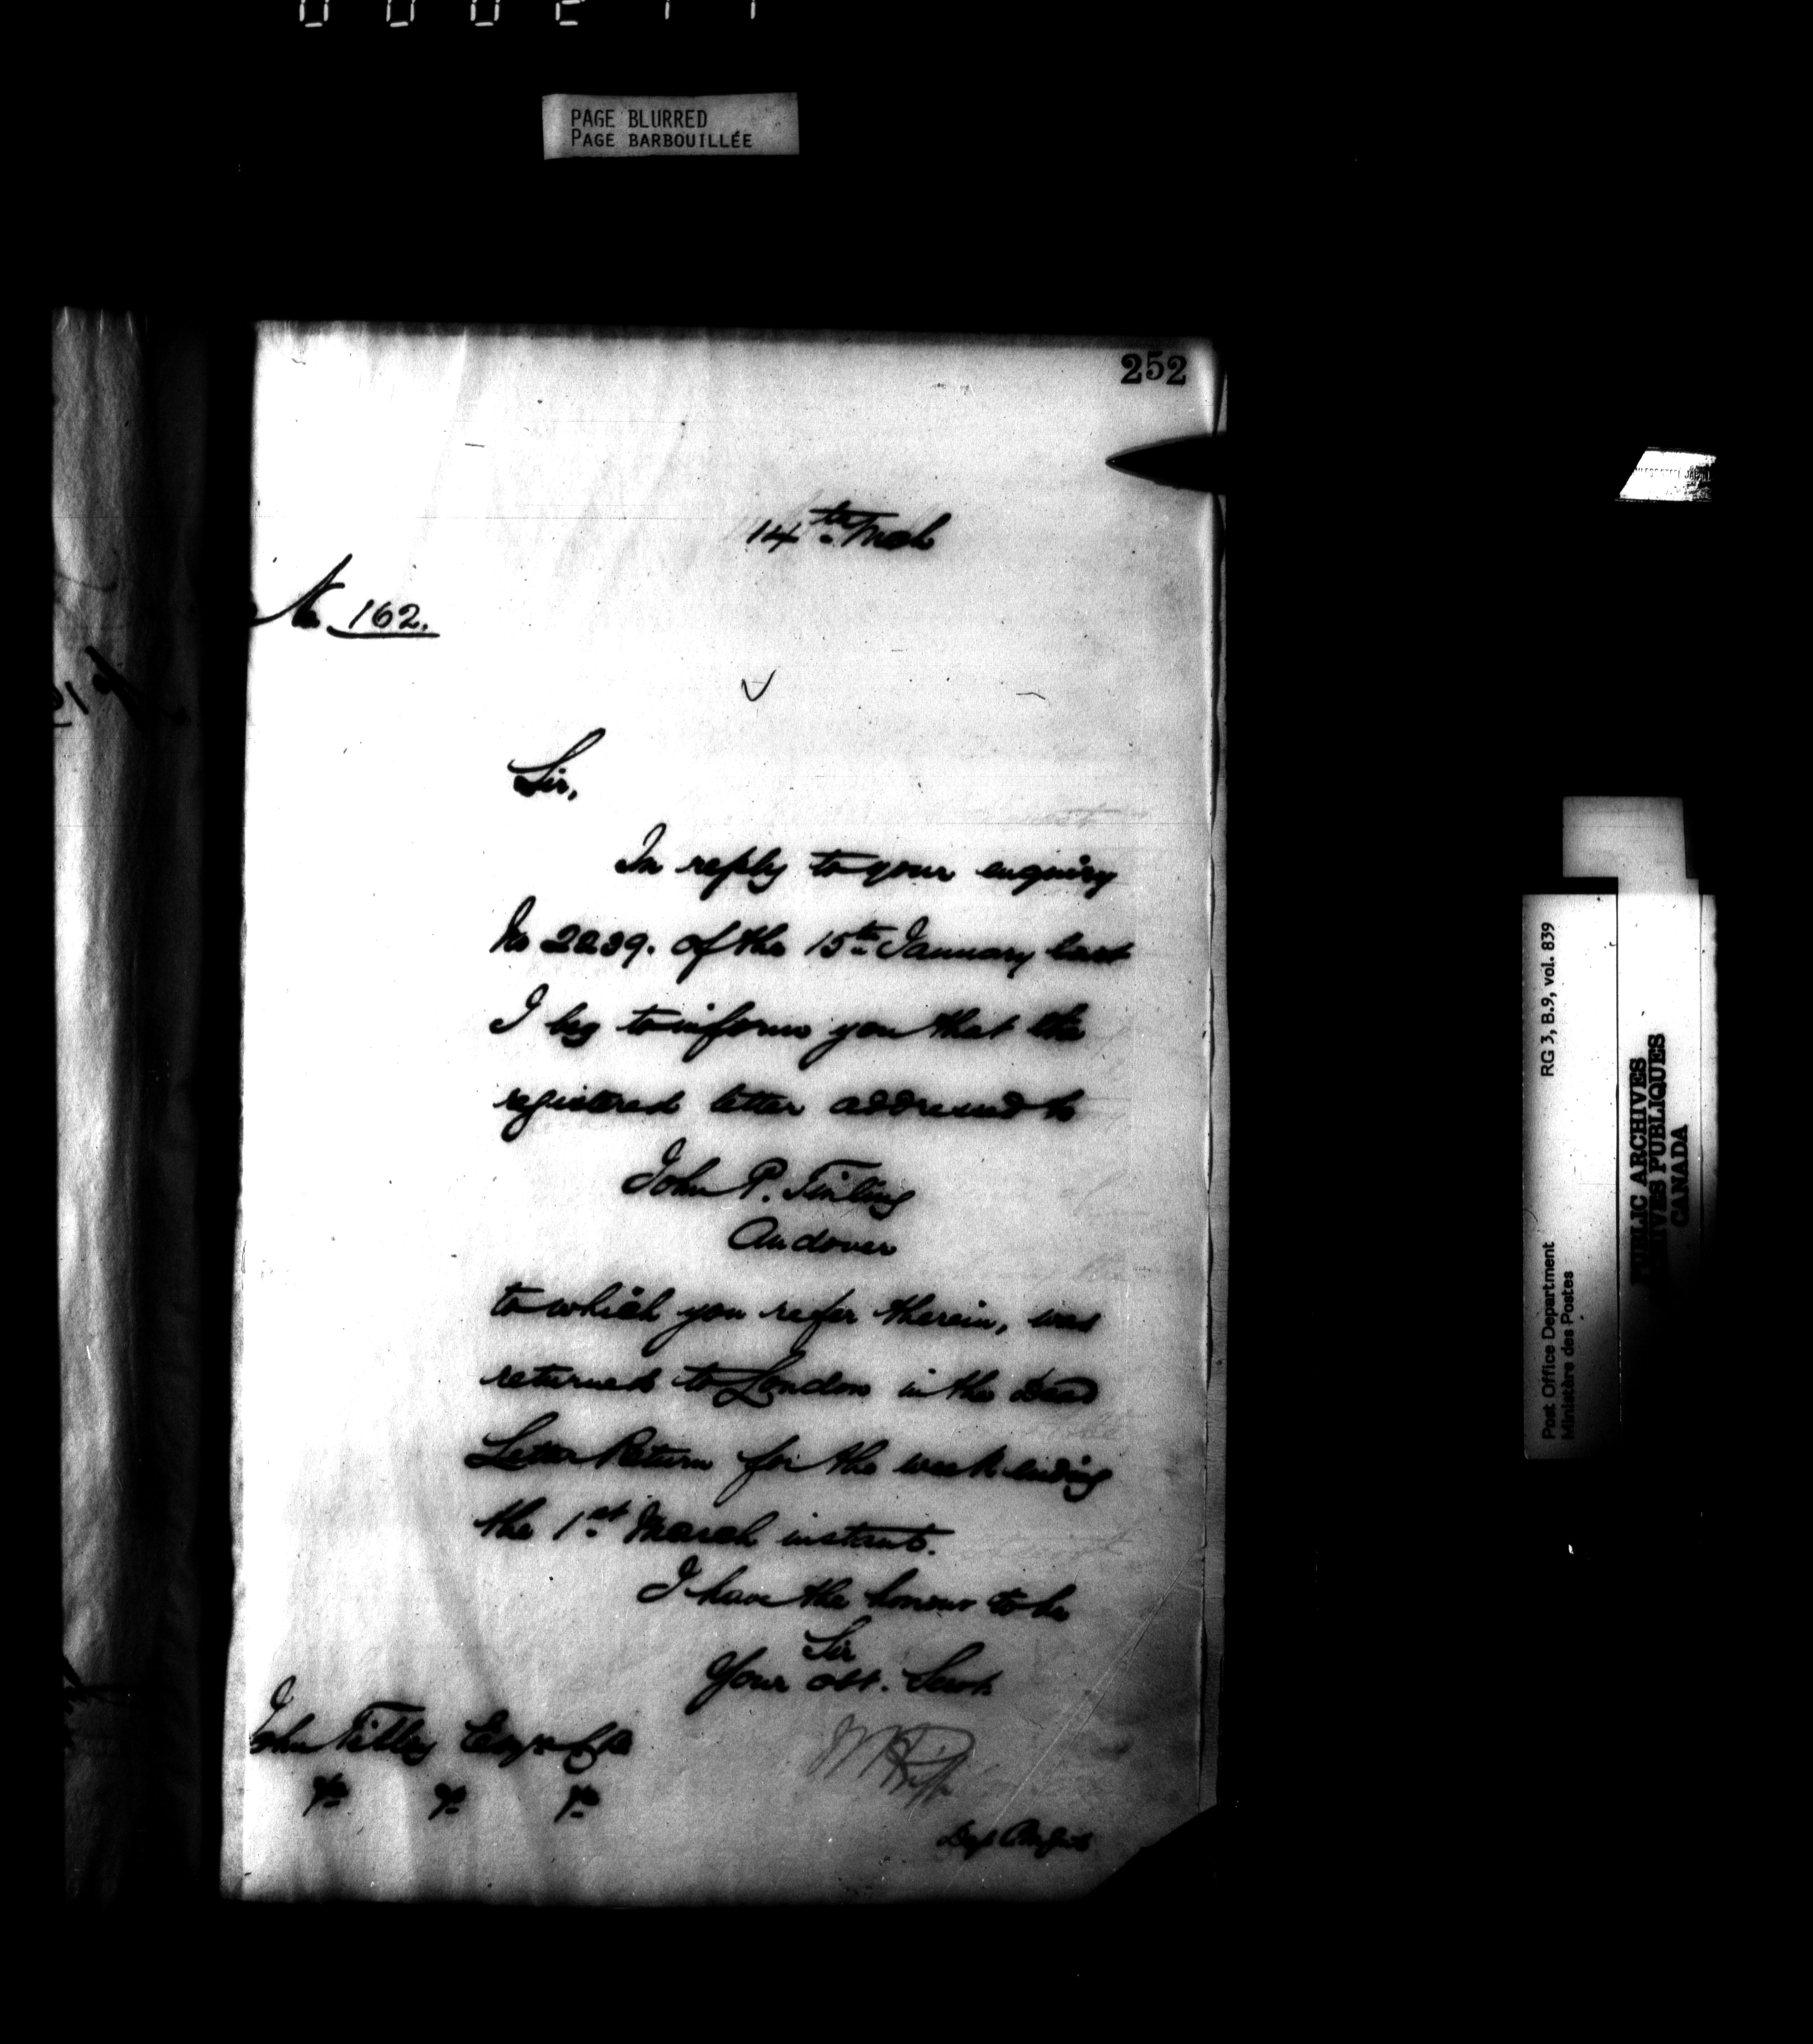 PAGE BLURRED
PAGE BARBOUILLÉE
252
14th Mch
No. 162.
Sir,
In reply to your enquiry
No 2239. of the 15th January last
I beg to inform you that the
registered letter addressed to
John P. Tinling
Andover
to which you refer therein, was
returned to London in the Dead
Letter Return for the week ending
the 1st March instant.
I have the honour to be
Sir
Your obt. Servt.
John Tilley Esqre
Post Office Department
Ministère des Postes
RG 3, B.9, vol. 839
PUBLIC ARCHIVES
ARCHIVES PUBLIQUES
CANADA